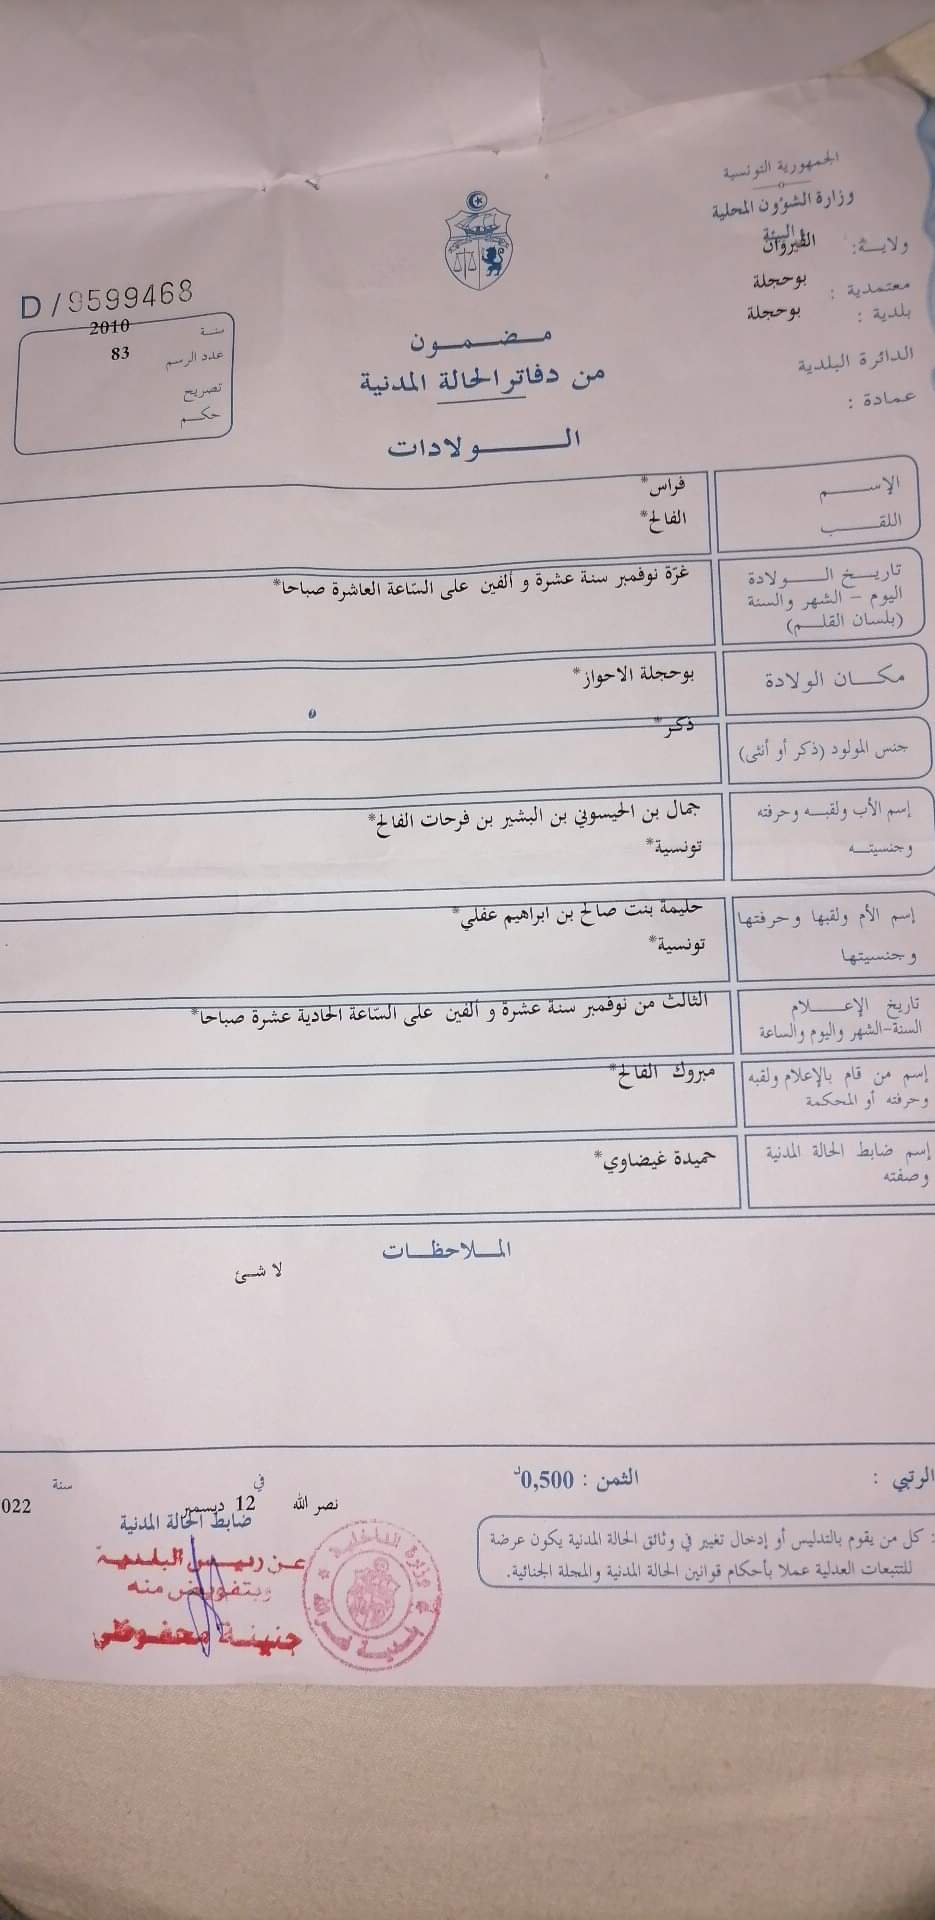 الجمهورية التونسية
وزارة الشؤون المحلية
و البيئة
ولايـــة: القيروان
معتمدية : بوحجلة
بلدية : بوحجلة
الدائرة البلدية
عمادة :
D / 9599468
سنـة 2010
عدد الرسم 83
تصريح
حكـــم
مـضـمـــون
من دفاتر الحالة المدنية
الــــولادات
الإســــم فراس*
اللقــــب الفالح*
تاريــخ الـــولادة غرّة نوفمبر سنة عشرة و ألفين على السّاعة العاشرة صباحا*
اليوم – الشهر والسنة
(بلسان القلــم)
مكــان الولادة بوحجلة الاحواز*
جنس المولود (ذكر أو أنثى) ذكر*
إسم الأب ولقبــه وحرفته جمال بن الحيسوني بن البشير بن فرحات الفالح*
وجنسيتــه تونسية*
إسم الأم ولقبها وحرفتها حليمة بنت صالح بن ابراهيم عفلي*
وجنسيتها تونسية*
تاريخ الإعــــلام الثالث من نوفمبر سنة عشرة و ألفين على السّاعة الحادية عشرة صباحا*
السنة-الشهر واليوم والساعة
إسم من قام بالإعلام ولقبه مبروك الفالح*
وحرفته أو المحكمة
إسم ضابط الحالة المدنية حميدة غيضاوي*
وصفته
المـلاحظــات
لا شئ
الرتبي :
الثمن : 0,500د
في
سنة
نصر الله 12 ديسمبر 022
ضابط الحالة المدنية
عـن رئيـس البلديـة
وبتفويض منه
جنينة محفوظي
وزارة الداخلية
بلدية نصر الله
: كل من يقوم بالتدليس أو إدخال تغيير في وثائق الحالة المدنية يكون عرضة
للتتبعات العدلية عملا بأحكام قوانين الحالة المدنية والمجلة الجنائية.